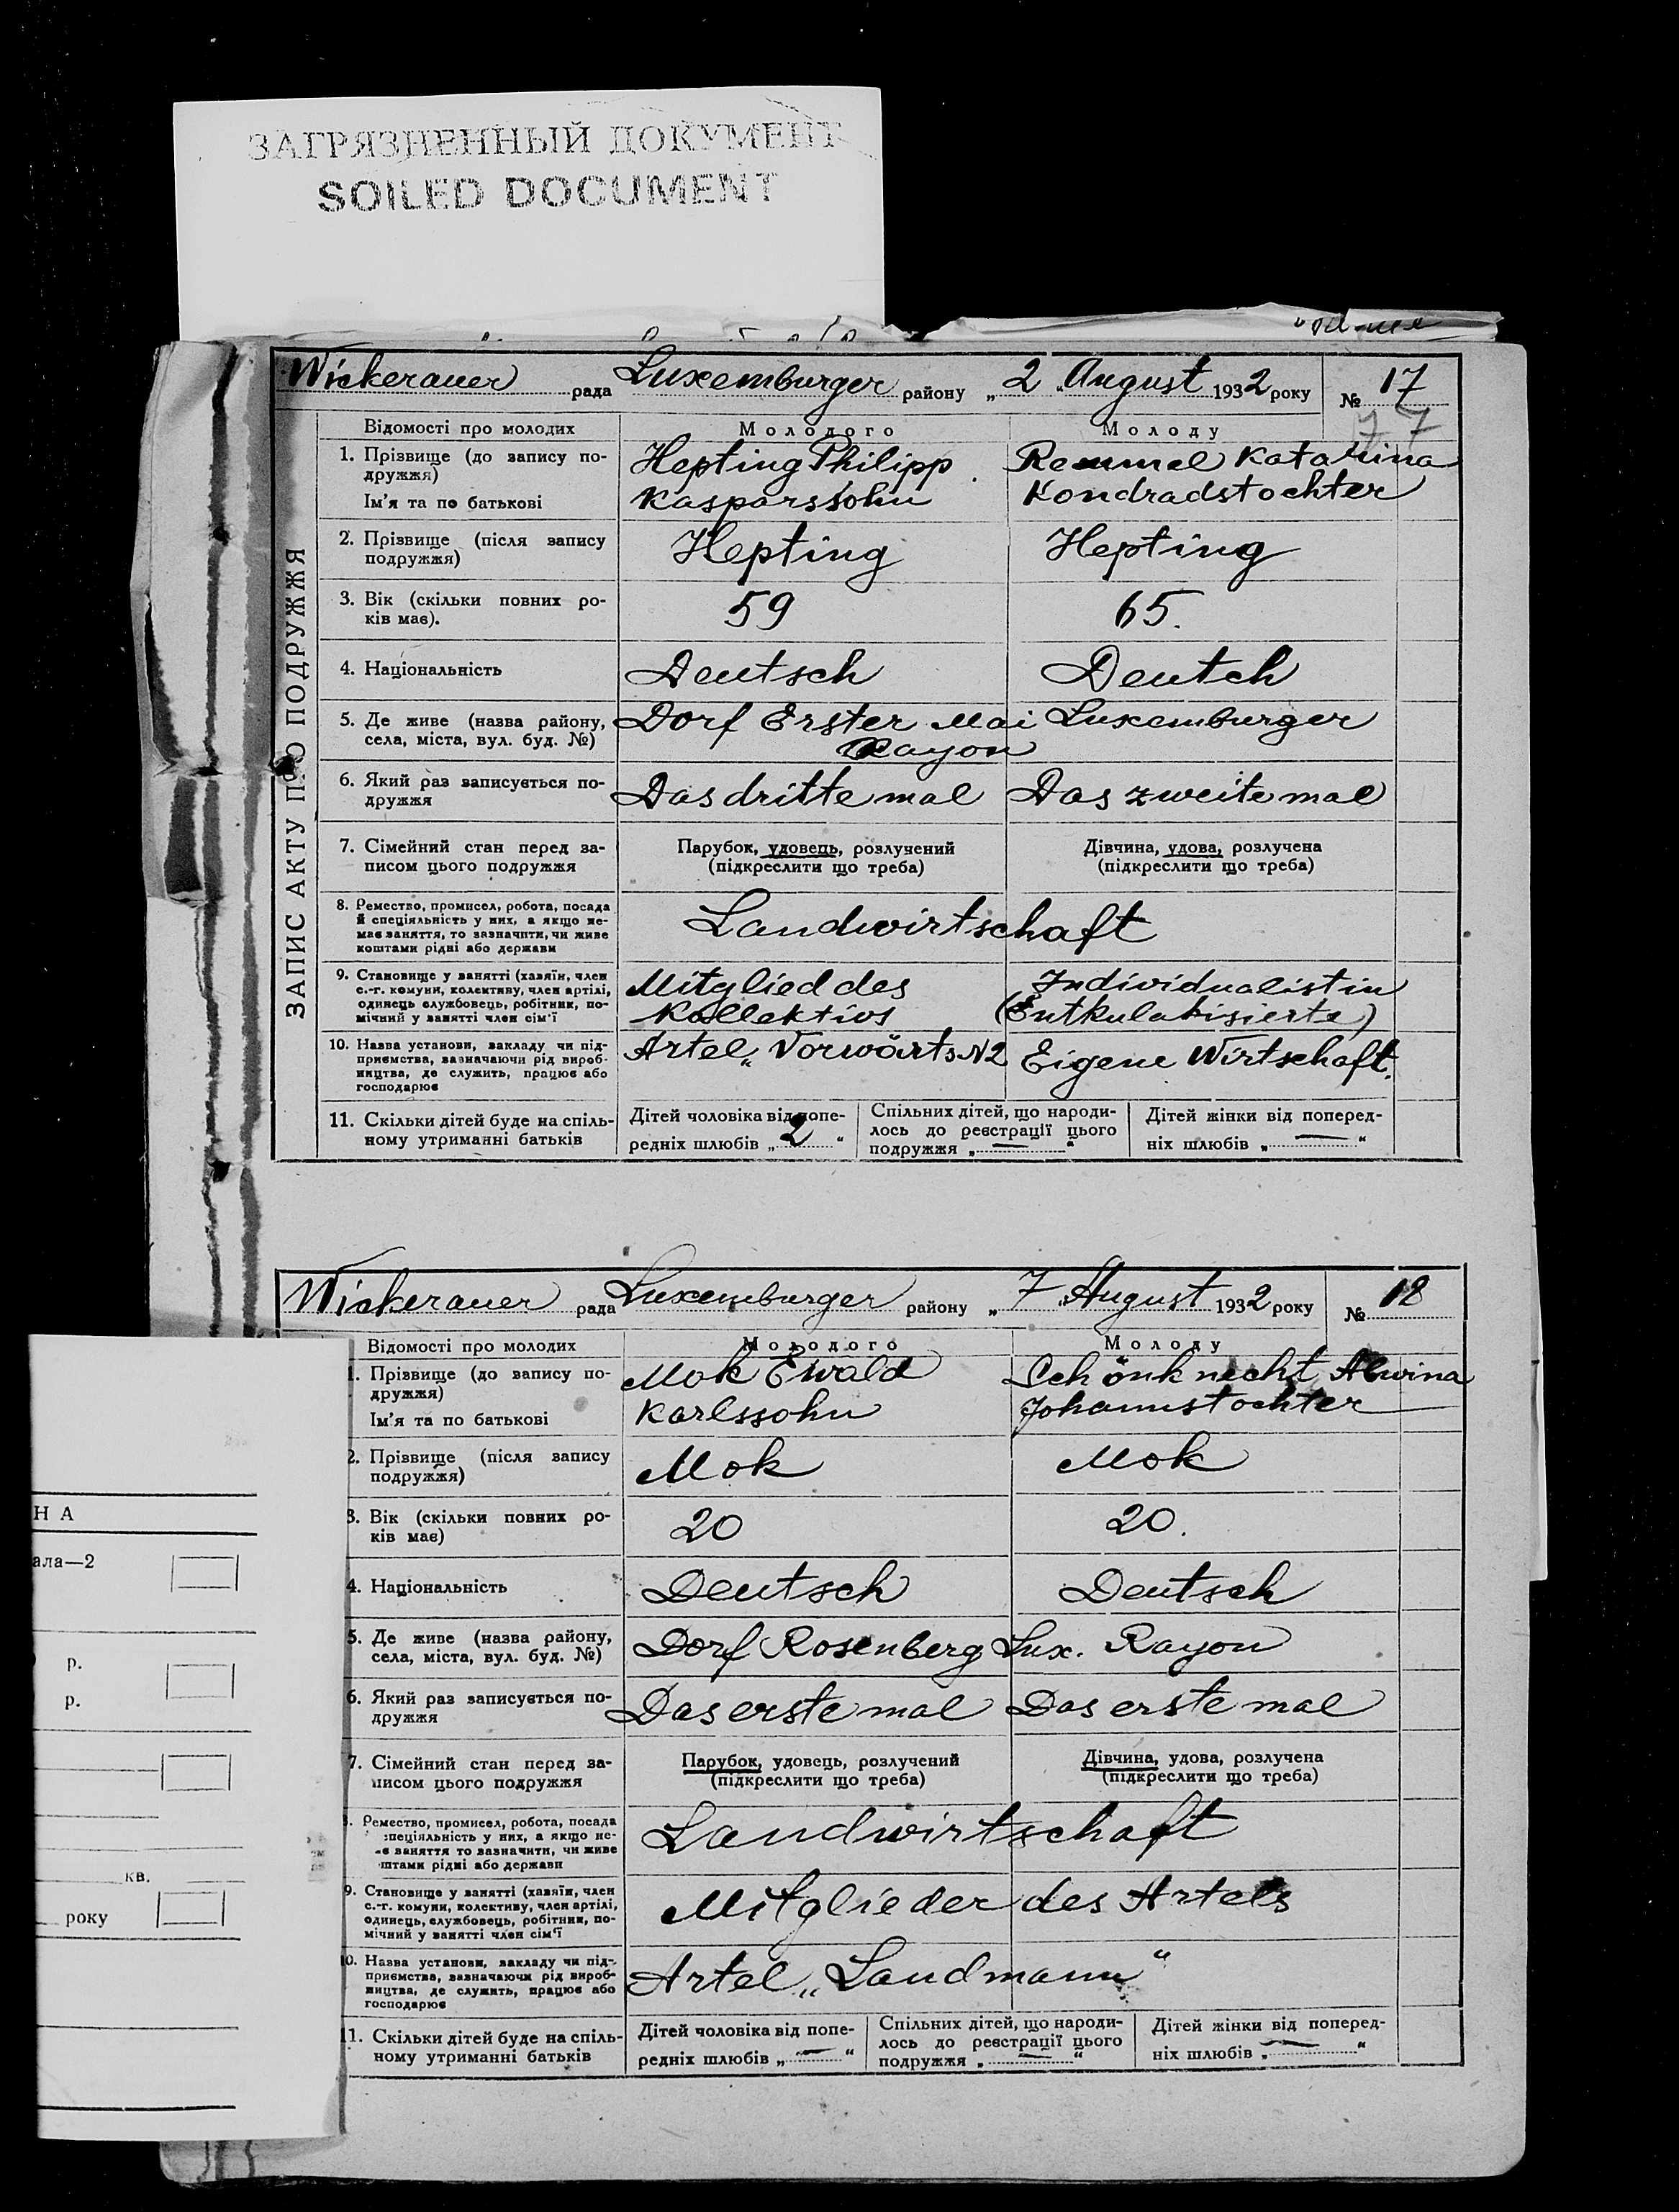 ЗАГРЯЗНЕННЫЙ ДОКУМЕНТ
SOILED DOCUMENT
Wickerauer рада Luxemburger району „ 2 " August 1932 року № 17
77
ЗАПИС АКТУ ПРО ПОДРУЖЖЯ
Відомості про молодих Молодого Молоду
1. Прізвище (до запису по- Hepting Philipp Remmel Katarina
дружжя)
Ім'я та по батькові Kasparssohn Kondradstochter
2. Прізвище (після запису Hepting Hepting
подружжя)
3. Вік (скільки повних ро- 59 65.
ків має).
4. Національність Deutsch Deutch
5. Де живе (назва району, Dorf Erster Mai Luxemburger
села, міста, вул. буд. №) Rayon
6. Який раз записується по- Das dritte mal Das zweite mal
дружжя
7. Сімейний стан перед за- Парубок, удовець, розлучений Дівчина, удова, розлучена
писом цього подружжя (підкреслити що треба) (підкреслити що треба)
8. Ремество, промисел, робота, посада
й спеціяльність у них, а якщо не- Landwirtschaft
має заняття, то зазначити, чи живе
коштами рідні або держави
9. Становище у занятті (хазяїн, член Mitglied des Individualistin
с.-г. комуни, колективу, член артілі,
одинець службовець, робітник, по- Kollektivs (Entkulakisierte)
мічний у занятті член сім'ї
10. Назва установи, закладу чи під- Artel „Vorwärts N2 Eigene Wirtschaft.
приємства, зазначаючи рід вироб-
ництва, де служить, працює або
господарює
11. Скільки дітей буде на спіль- Дітей чоловіка від попе- Спільних дітей, що народи- Дітей жінки від поперед-
ному утриманні батьків редніх шлюбів „ 2 " лось до реєстрації цього ніх шлюбів „ — "
подружжя „ — "
Wickerauer рада Luxemburger району „ 7 " August 1932 року № 18
Відомості про молодих Молодого Молоду
1. Прізвище (до запису по- Mok Ewald Schönknecht Alwina
дружжя)
Ім'я та по батькові Karlssohn Johannstochter
2. Прізвище (після запису Mok Mok
подружжя)
3. Вік (скільки повних ро- 20 20.
ків має)
4. Національність Deutsch Deutsch
5. Де живе (назва району, Dorf Rosenberg Lux. Rayon
села, міста, вул. буд. №)
6. Який раз записується по- Das erste mal Das erste mal
дружжя
7. Сімейний стан перед за- Парубок, удовець, розлучений Дівчина, удова, розлучена
писом цього подружжя (підкреслити що треба) (підкреслити що треба)
Ремество, промисел, робота, посада
спеціяльність у них, а якщо не- Landwirtschaft
є заняття то зазначити, чи живе
штами рідні або держави
9. Становище у занятті (хазяїн, член
с.-г. комуни, колективу, член артілі, Mitglieder des Artels
одинець, службовець, робітник, по-
мічний у занятті член сім'ї
10. Назва установи, закладу чи під- Artel „Landmann"
приємства, зазначаючи рід вироб-
ництва, де служить, працює або
господарює
11. Скільки дітей буде на спіль- Дітей чоловіка від попе- Спільних дітей, що народи- Дітей жінки від поперед-
ному утриманні батьків редніх шлюбів „ — " лось до реєстрації цього ніх шлюбів „ — "
подружжя „ — "
НА
ала—2
р.
р.
кв.
року